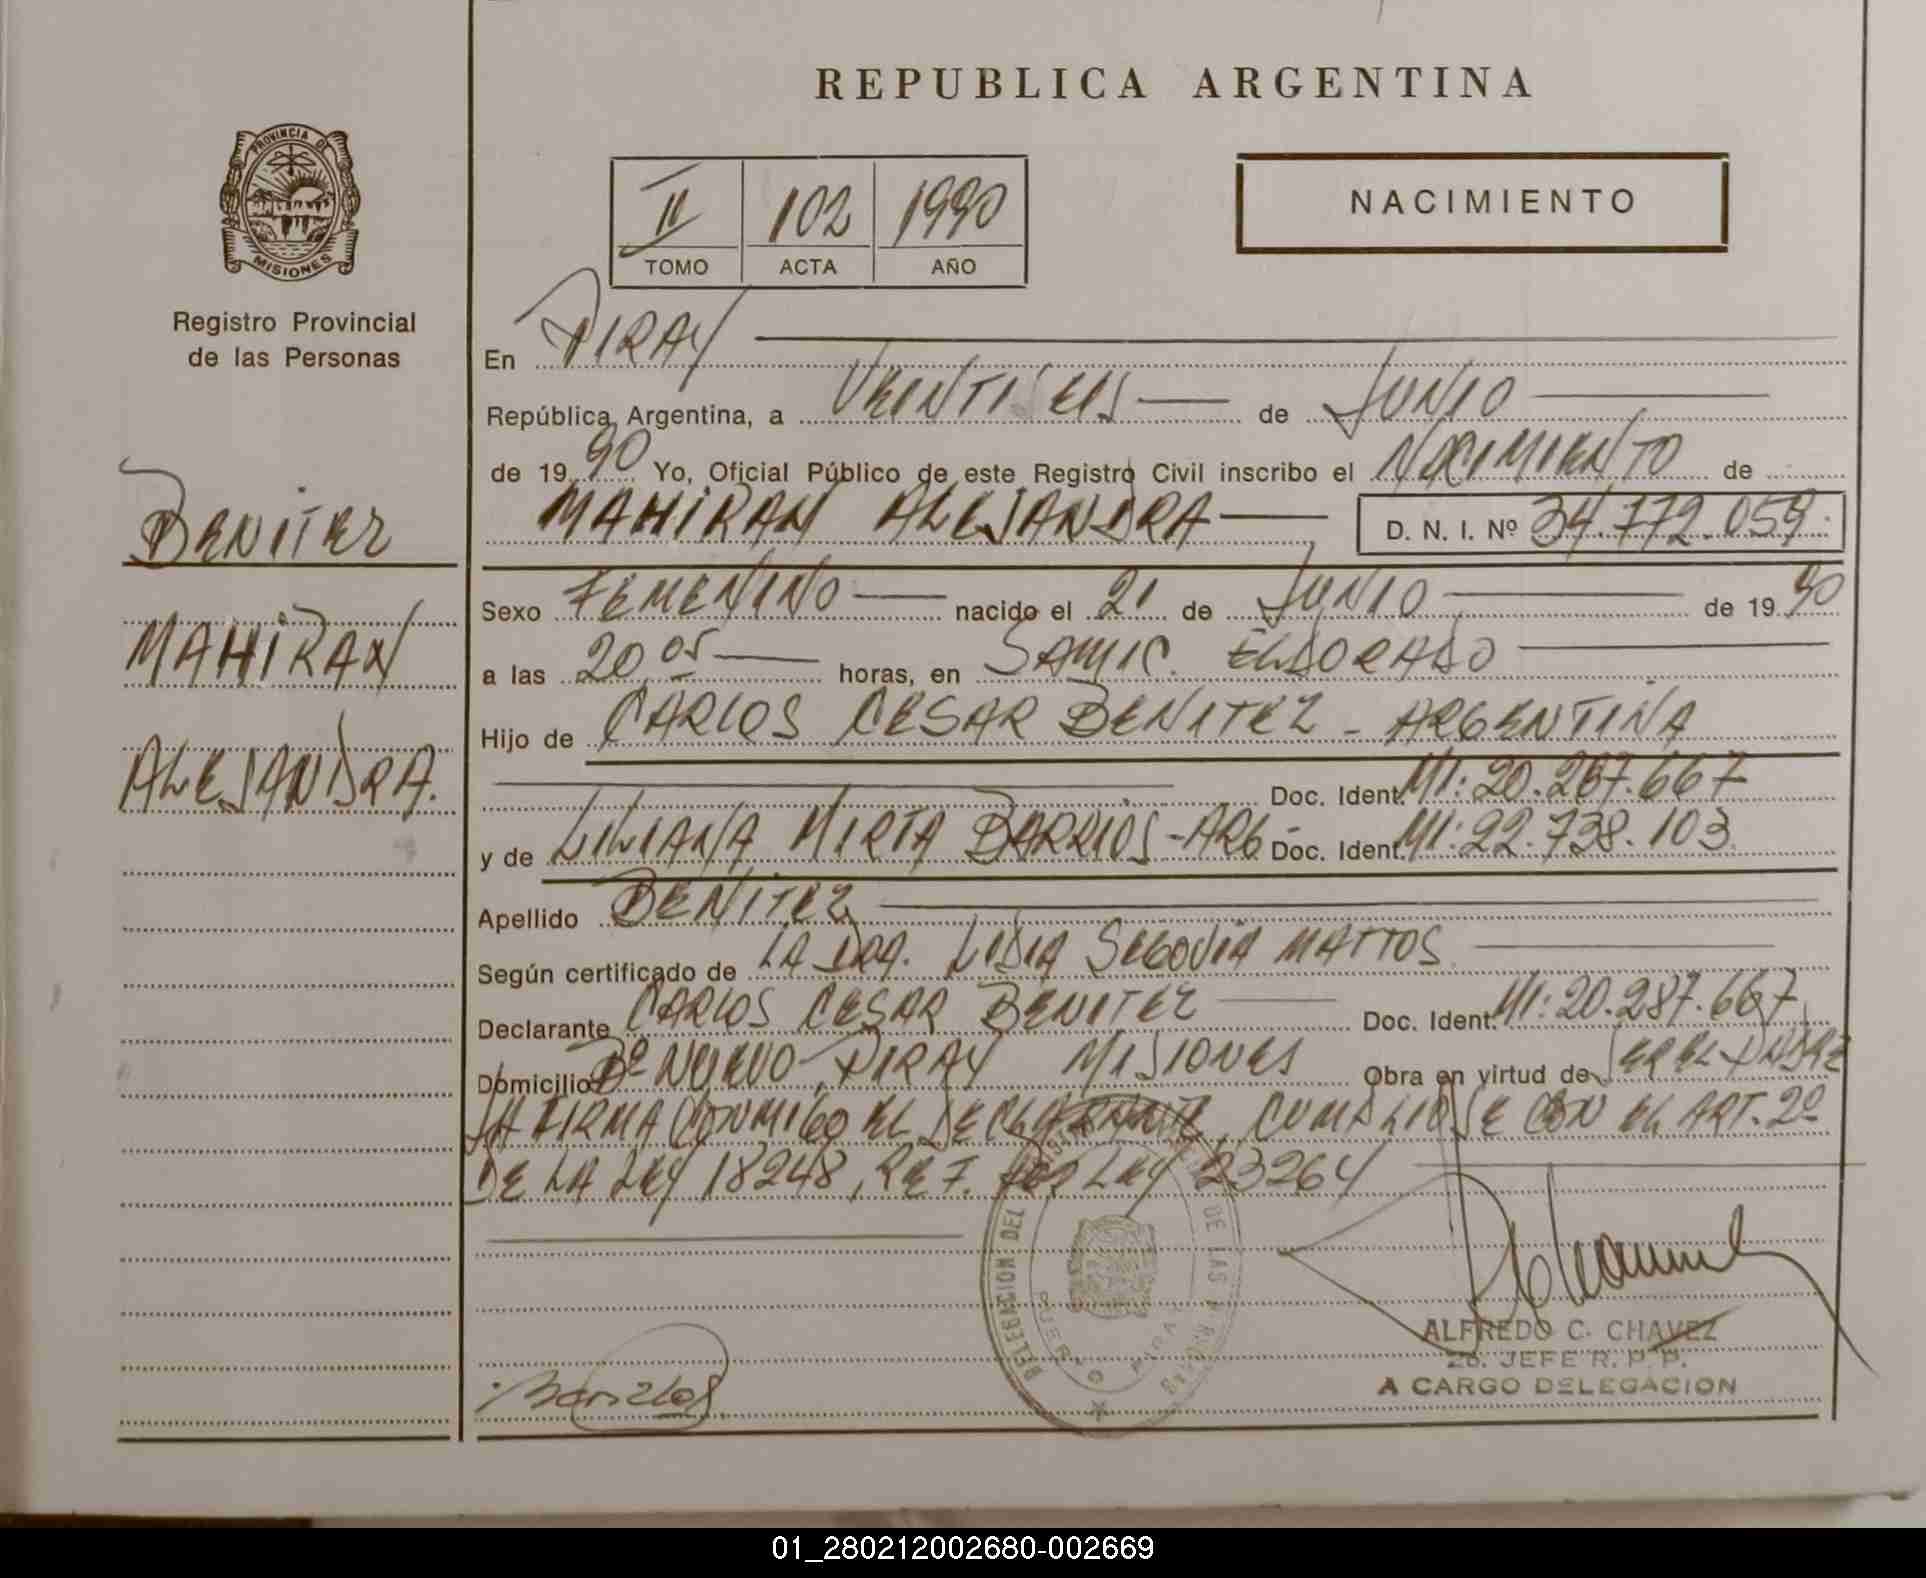 REPUBLICA ARGENTINA
PROVINCIA D
MISIONES
Registro Provincial
de las Personas
II 102 1990
TOMO ACTA AÑO
NACIMIENTO
En PIRAY
República Argentina, a VEINTISEIS de JUNIO
de 1990 Yo, Oficial Público de este Registro Civil inscribo el NACIMIENTO de
MAHIRAN ALEJANDRA D. N. I. Nº 34.772.059.
BENITEZ
MAHIRAN
ALEJANDRA.
Sexo FEMENINO nacido el 21 de JUNIO de 1990
a las 20,05 horas, en SAMIC. ELDORADO
Hijo de CARLOS CESAR BENITEZ - ARGENTINA
Doc. Ident. MI: 20.287.667
y de LILIANA MIRTA BARRIOS - ARG - Doc. Ident. MI: 22.738.103
Apellido BENITEZ
Según certificado de LA DRA. LIDIA SEGOVIA MATTOS
Declarante CARLOS CESAR BENITEZ Doc. Ident. MI: 20.287.667
Domicilio Bº NUEVO - PIRAY MISIONES Obra en virtud de SER EL PADRE
LA FIRMA CONMIGO EL DECLARANTE, CUMPLIOSE CON EL ART. 2º
DE LA LEY 18248, REF. POR LEY 23264
DELEGACION DEL DE LAS
PUERTO PIRAY
ALFREDO C. CHAVEZ
2o. JEFE R. P. P.
A CARGO DELEGACION
01_280212002680-002669